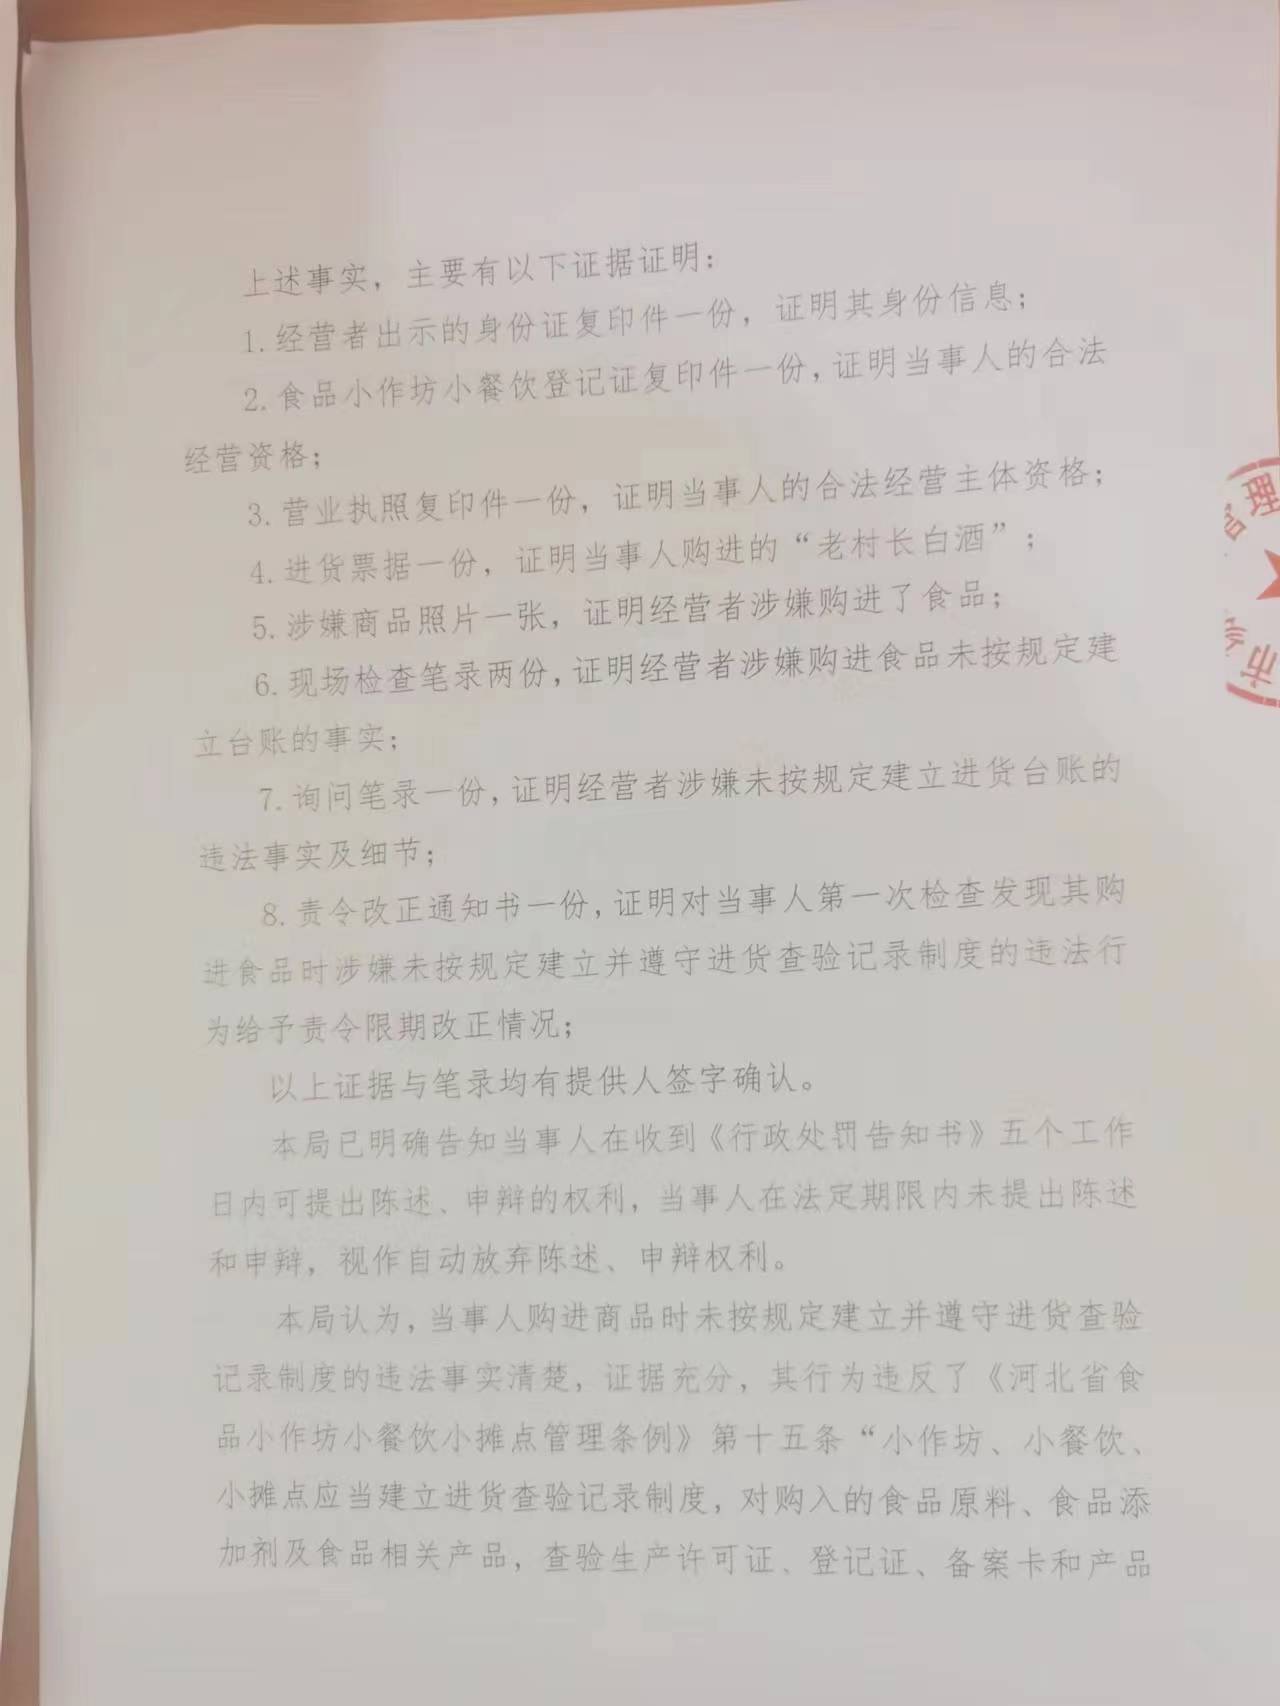 上述事实，主要有以下证据证明：
1.经营者出示的身份证复印件一份，证明其身份信息；
2.食品小作坊小餐饮登记证复印件一份，证明当事人的合法
经营资格；
3.营业执照复印件一份，证明当事人的合法经营主体资格；
4.进货票据一份，证明当事人购进的“老村长白酒”；
5.涉嫌商品照片一张，证明经营者涉嫌购进了食品；
6.现场检查笔录两份，证明经营者涉嫌购进食品未按规定建
立台账的事实；
7.询问笔录一份，证明经营者涉嫌未按规定建立进货台账的
违法事实及细节；
8.责令改正通知书一份，证明对当事人第一次检查发现其购
进食品时涉嫌未按规定建立并遵守进货查验记录制度的违法行
为给予责令限期改正情况；
以上证据与笔录均有提供人签字确认。
本局已明确告知当事人在收到《行政处罚告知书》五个工作
日内可提出陈述、申辩的权利，当事人在法定期限内未提出陈述
和申辩，视作自动放弃陈述、申辩权利。
本局认为，当事人购进商品时未按规定建立并遵守进货查验
记录制度的违法事实清楚，证据充分，其行为违反了《河北省食
品小作坊小餐饮小摊点管理条例》第十五条“小作坊、小餐饮、
小摊点应当建立进货查验记录制度，对购入的食品原料、食品添
加剂及食品相关产品，查验生产许可证、登记证、备案卡和产品
理
市